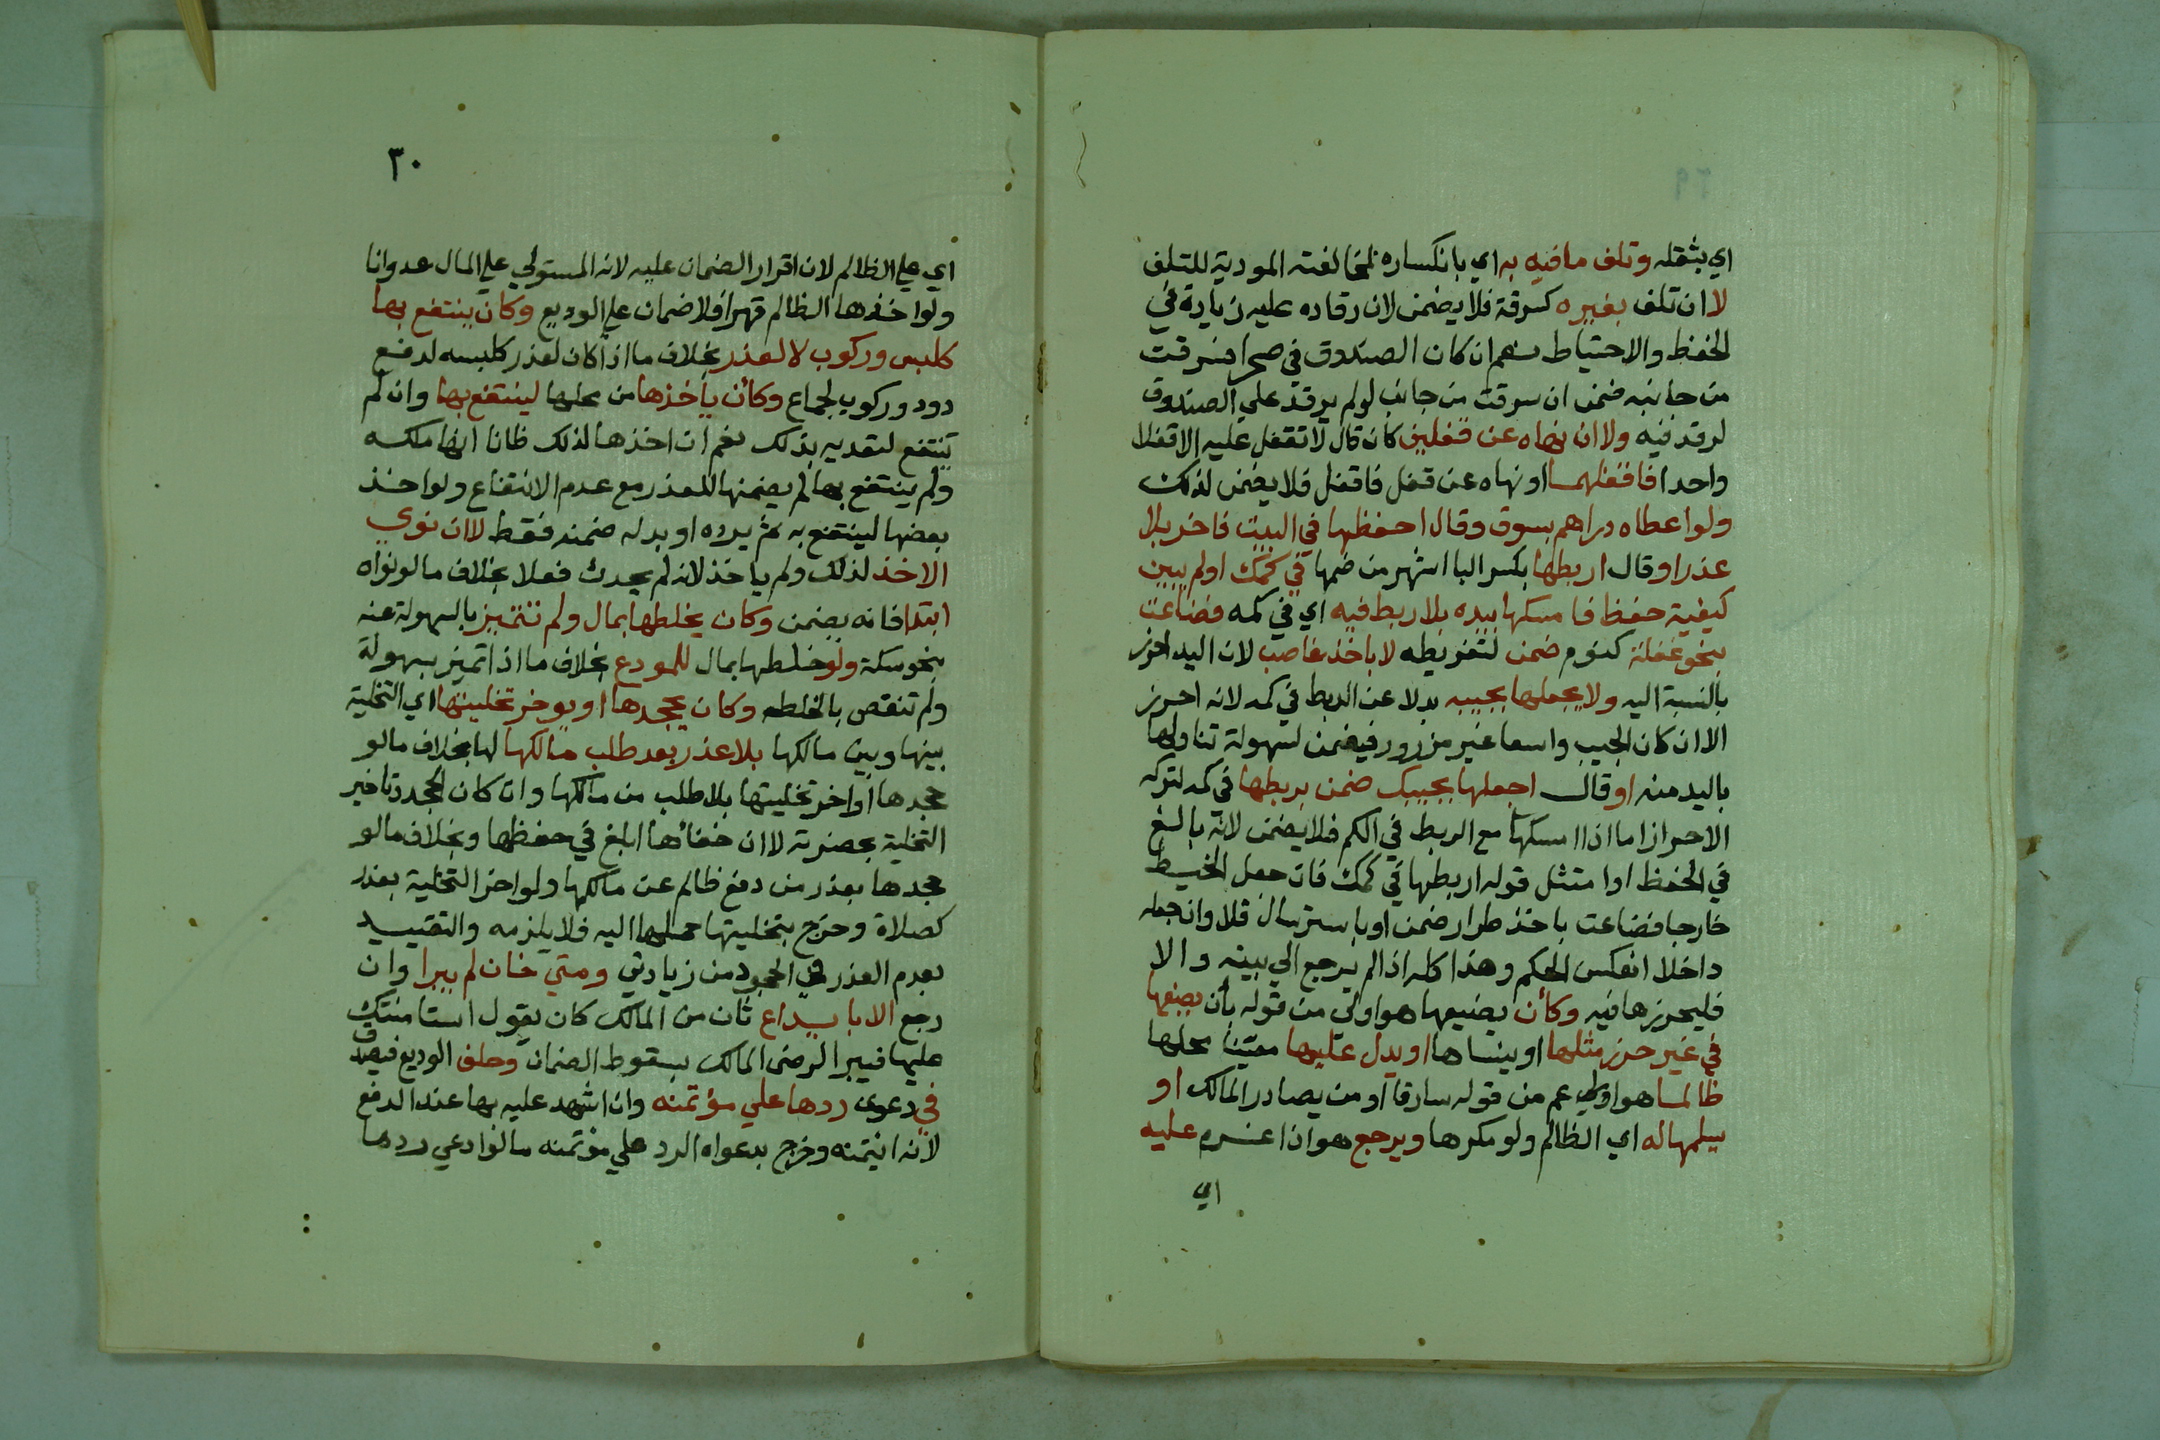 اي بثقله وتلف ما فيه به اي بانكساره لمخالفته المودية للتلف
لا ان تلف بغيره كسرقة فلا يضمن لان رقاده عليه زيادة في
الحفظ والاحتياط نعم ان كان الصندوق في صحرا فسرقت
من جانبه ضمن ان سرقت من جانب لو لم يرقد علي الصندوق
لرقد فيه ولا ان نهاه عن قفلين كان قال لا تقفل عليه الا قفلا
واحدا فاقفلهما او نهاه عن قفل فاقفل فلا يضمن لذلك
ولو اعطاه دراهم بسوق وقال احفظها في البيت فاخر بلا
عذر او قال اربطها بكسر البا اشهر من ضمها في كمك او لم يبين
كيفية حفظ فامسكها بيده بلا ربط فيه اي في كمه فضاعت
بنحو غفلة كنوم ضمن لتفريطه لا باخذ غاصب لان اليد احرز
بالنسبة اليه ولا يجعلها بجيبه بدلا عن الربط في كمه لانه احرز
الا ان كان الجيب واسعا غير مزرور فيضمن لسهولة تناولها
باليد منه او قال اجعلها بجيبك ضمن بربطها في كمه لتركه
الاحراز اما اذا امسكها مع الربط في الكم فلا يضمن لانه بالغ
في الحفظ او امتثل قوله اربطها في كمك فان جعل الخيط
خارجا فضاعت باخذ طرار ضمن او باسترسال فلا وان جعله
داخلا انعكس الحكم وهذا كله اذا لم يرجع الي بيته والا
فليحرزها فيه وكأن يضيعها هو اولى من قوله بأن يضعها
في غير حرز مثلها او ينساها او يدل عليها معينا محلها
ظالما هو اولي عم من قوله سارقا او من يصادر المالك او
يسلمها له اي الظالم ولو مكرها ويرجع هو اذا غرم عليه
اي
٣٠
اي علي الظالم لان اقرار الضمان عليه لانه المستولي علي المال عدوانا
ولو اخذها الظالم قهرا فلا ضمان علي الوديع وكان ينتفع بها
كلبس وركوب لا لعذر بخلاف ما اذا كان لعذر كلبسه لدفع
دود وركوب لجماع وكأن ياخذها من محلها لينتفع بها وان لم
ينتفع لتعديه بذلك نعم ان اخذها لذلك ظانا انها ملكه
ولم ينتفع بها لم يضمنها للعذر مع عدم الانتفاع ولو اخذ
بعضها لينتفع به ثم يرده او بدله ضمنه فقط لا ان نوي
الاخذ لذلك ولم ياخذ لانه لم يحدث فعلا بخلاف ما لو نواه
ابتدا فانه يضمن وكان يخلطها بمال ولم تتميز بالسهولة عنه
بنحو سكة ولو خلطها بمال للمودع بخلاف ما اذا تميز بسهولة
ولم تنقص بالخلطه وكان يجحدها او يوخر تخليتها اي التخلية
بينها وبين مالكها بلا عذر بعد طلب مالكها لها بخلاف ما لو
جحدها او اخر تخليتها بلا طلب من مالكها وان كان الجحد وتاخير
التخلية بحضرته لا ان خفاءها ابلغ في حفظها وبخلاف ما لو
جحدها بعذر من دفع ظالم عن مالكها ولو اخر التخلية بعذر
كصلاة وخرج بتخليتها حملها اليه فلا يلزمه والتقييد
بعدم العذر في الجحود من زيادتي ومتي خان لم يبرا وان
رجع الا بايداع ثان من المالك كان يقول استامنتك
عليها فيبرا لرضى المالك بسقوط الضمان وحلف الوديع فيصدق
في دعوى ردها علي مؤتمنه وان اشهد عليه بها عند الدفع
لانه ائتمنه وخرج بدعواه الرد علي مؤتمنه ما لو ادعي ردها